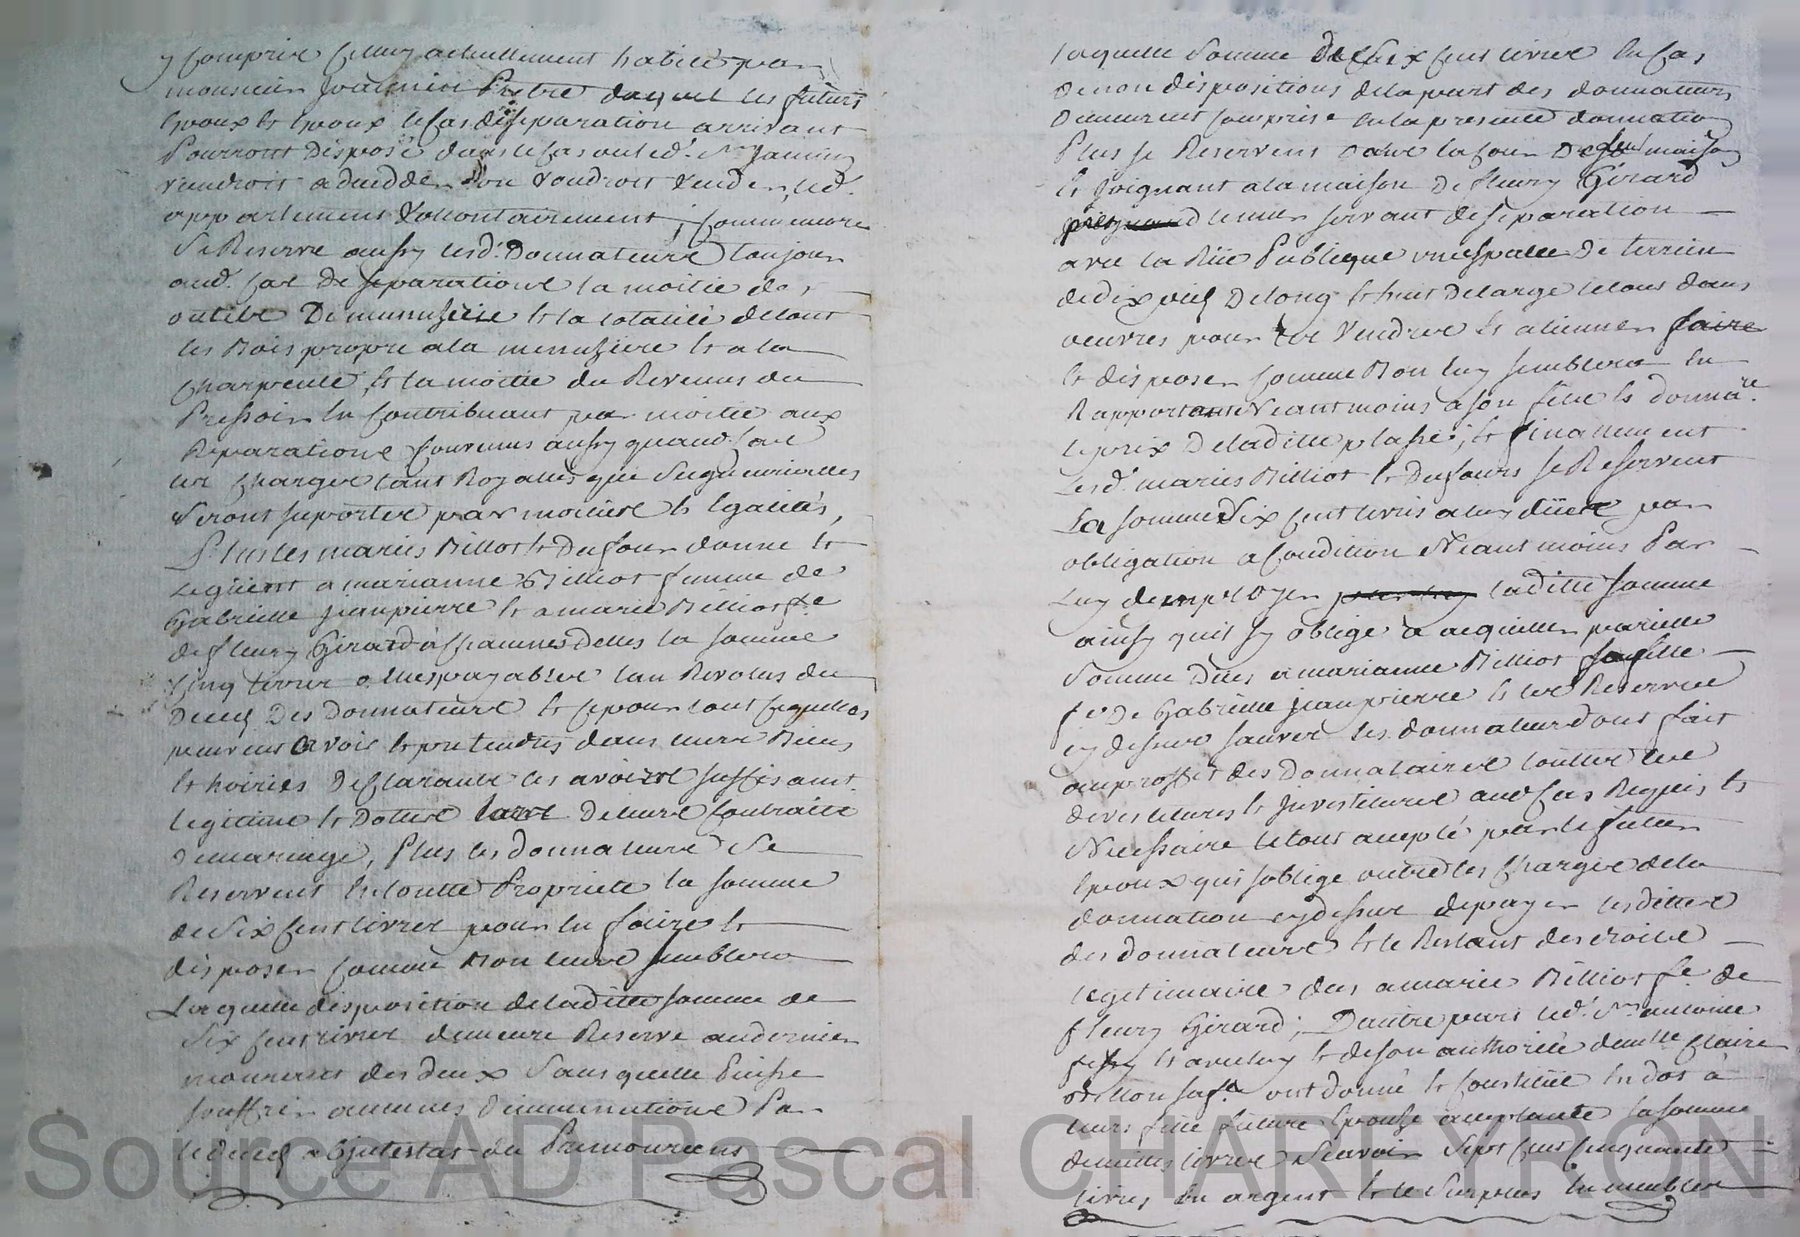 y compris celluy actuellement habité par
monsieur Prêtre duquel les futurs
Epoux et Epoux le cas de separation arrivant
Pourront disposé dans le cas ou led. Sr Jamin
viendroit a deceder ou voudroit vendre led.
appartement vollontairement, comm'encore
Se Reserve aussy lesd. Donnateurs toujours
aud. cas de separations la moitié des
outils De menusserie et la totalité de tout
les Bois propre a la menusiere et a la
charpente, et la moitié du Revenus du
Pressoir En Contribuant par moitié aux
Reparations survenus aussy quand. cas
les charges tant Royalles que Seigneurialles
Seront suportés par moitiés et Egalités,
Plus les mariés Billiot et Dufour donne et
Leguent a marianne Billiot femme de
Gabrielle jeanpierre et a marie Billiot fe
de fleury Girard a chacunes delles la somme
Cinq livres a Elles payables l'an Revolus du
Decès Des Donnateurs et ce pour tout ce quelles
peuvent avoir et pretendres dans leurs Biens
et hoiries Desclarants les avoirs suffisant
legitime et Dottés lors De leurs Contraits
De mariage, Plus les Donnateurs Se
Reservent En toutte Proprieté la somme
de Six Cent livres pour En faire et
disposer comme Bon leurs semblera
Laquelle disposition de laditte somme de
Six Cent livres demeure Reservé au dernier
mourants des deux Sans quelle Puisse
souffrir aucunes diminuations Par
le decès abjntestat du Premourrant
laquelle Somme De Six Cent livres En Cas
De non dispositions de la part des donnateurs
Demeurent comprise En la presente donnation
Plus se Reservent Dans la Cour De maison
et joignant a la maison De fleury Girard
le mur servant de separation
avec la Rüe Publique un espasse De terrein
de dix pieds De long et huit De large le tout dans
oeuvres pour les Vendres et alienner faire
et disposer comme Bon luy semblera En
Rapportant Neantmoins a son frere le donnare
le prix De laditte plasse; et finallement
Lesd. mariés Billiot et Dufours se Reservent
La somme Six Cent livres a luy düee par
obligation a Condition Neantmoins Par
Luy demployer laditte somme
ainsy quil sy oblige a acquitter pareille
Somme Dües a marianne Billiot sa fille
fe De Gabrielle jeanpierre et les Reserves
cy dessus sauves les donnateurs ont fait
au proffit des Donnataires touttes les
devestitures et jnvestitures aud. Cas Requis et
Necessaire le tout accepté par le futur
Epoux qui s'oblige outre les charges de la
donnation cy dessus de payer les dettes
des donnateurs et le Restant des droits
legitimaire dus a marie Billiot fe de
fleury Girard; D'autre part led. Sr antoine
fessy et avec luy et de son authorité demlle Claire
odillon sa fe ont donné et constitué En dot à
leurs fille future Epouse acceptante la somme
de milles livres Scavoir Sept Cent Cinquante
livres En argent et le Surplus En meubles
Source AD Pascal CHARLYRON